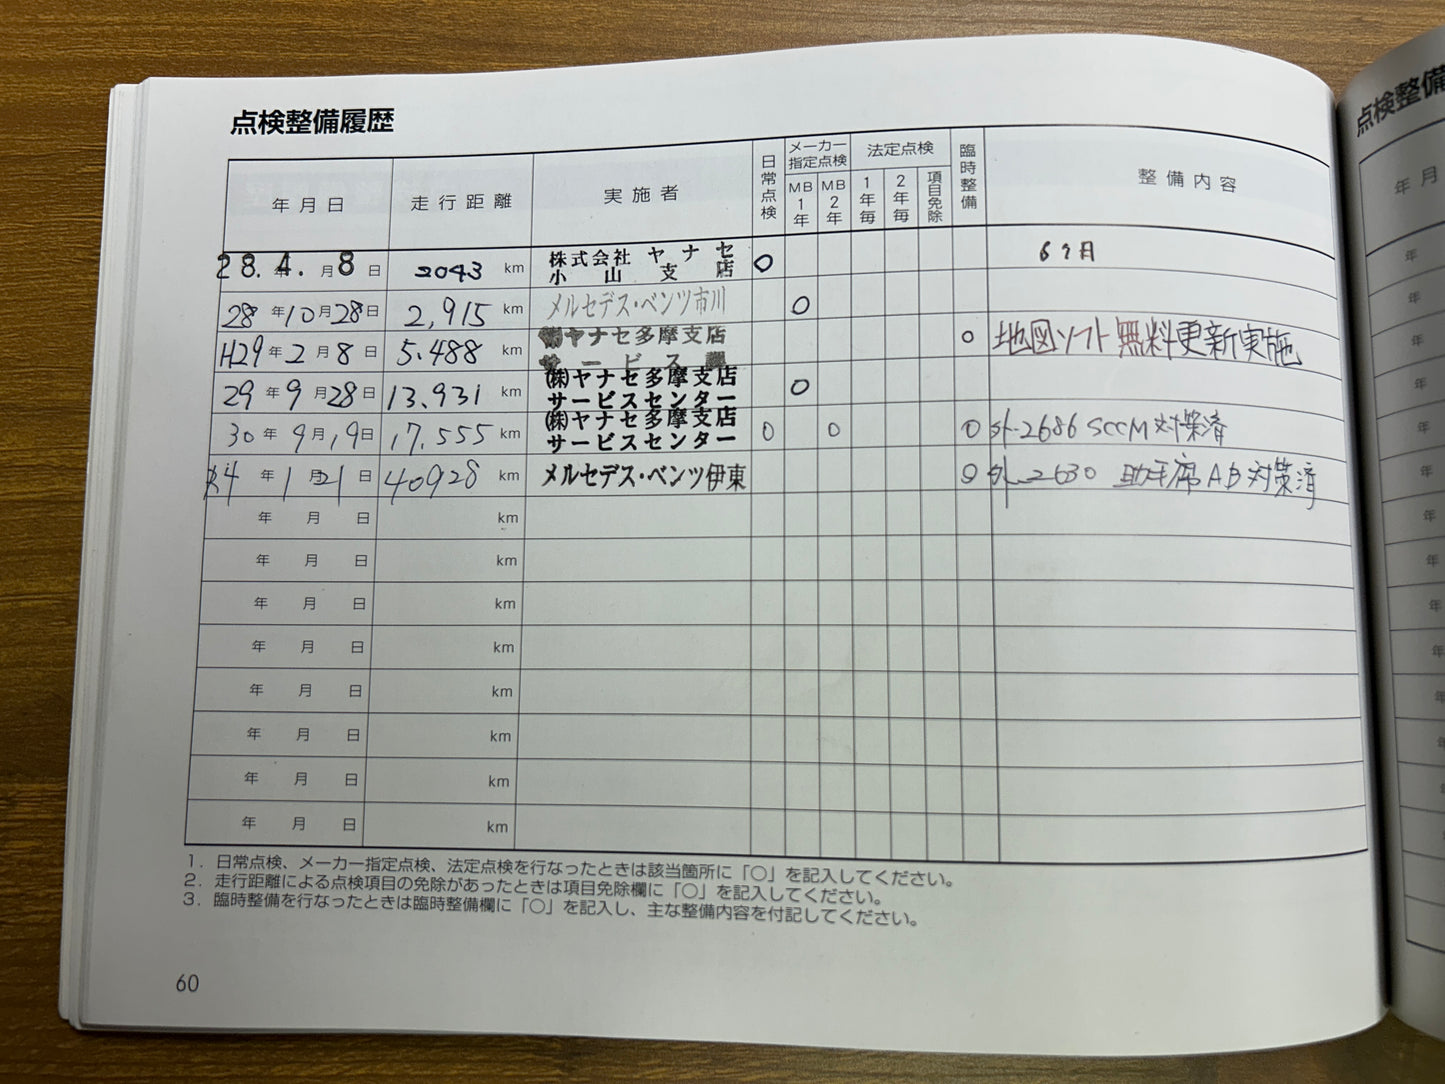 点検整備履歴
年月日 走行距離 実施者 日常点検 メーカー指定点検 MB1年 MB2年 法定点検 1年毎 2年毎 項目免除 臨時整備 整備内容
28.4.月8日 2043 km 株式会社ヤナセ小山支店 ○ 6ヶ月
28年10月28日 2,915 km メルセデス・ベンツ市川 ○
H29年2月8日 5.488 km ㈱ヤナセ多摩支店 サービス ○ 地図ソフト無料更新実施
29年9月28日 13.931 km ㈱ヤナセ多摩支店サービスセンター ○
30年9月19日 17.555 km ㈱ヤナセ多摩支店サービスセンター ○ ○ ○ 外-2686 SCCM対策済
R4年1月21日 40928 km メルセデス・ベンツ伊東 ○ 外-2630 助手席AB対策済
年 月 日 km
年 月 日 km
年 月 日 km
年 月 日 km
年 月 日 km
年 月 日 km
年 月 日 km
年 月 日 km
1. 日常点検、メーカー指定点検、法定点検を行なったときは該当箇所に「○」を記入してください。
2. 走行距離による点検項目の免除があったときは項目免除欄に「○」を記入してください。
3. 臨時整備を行なったときは臨時整備欄に「○」を記入し、主な整備内容を付記してください。
60
点検整備
年月
年
年
年
年
年
年
年
年
年
年
年
年
年